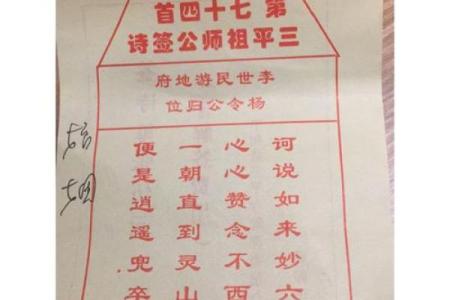 第七十四首
三平祖师公签诗
李世民游地府
杨令公归位
诃说如来妙六
心心赞念不西
一朝直到灵山
便是逍遥兜率